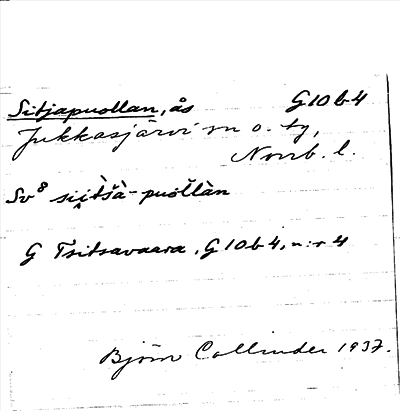 Sitjapuollan, ås G10b4
Jukkasjärvi sn o. tg,
Norrb. l.
Sv8 siitšà-puollàn
G Tsitsavaara, G10b4, n:r 4
Björn Collinder 1937.